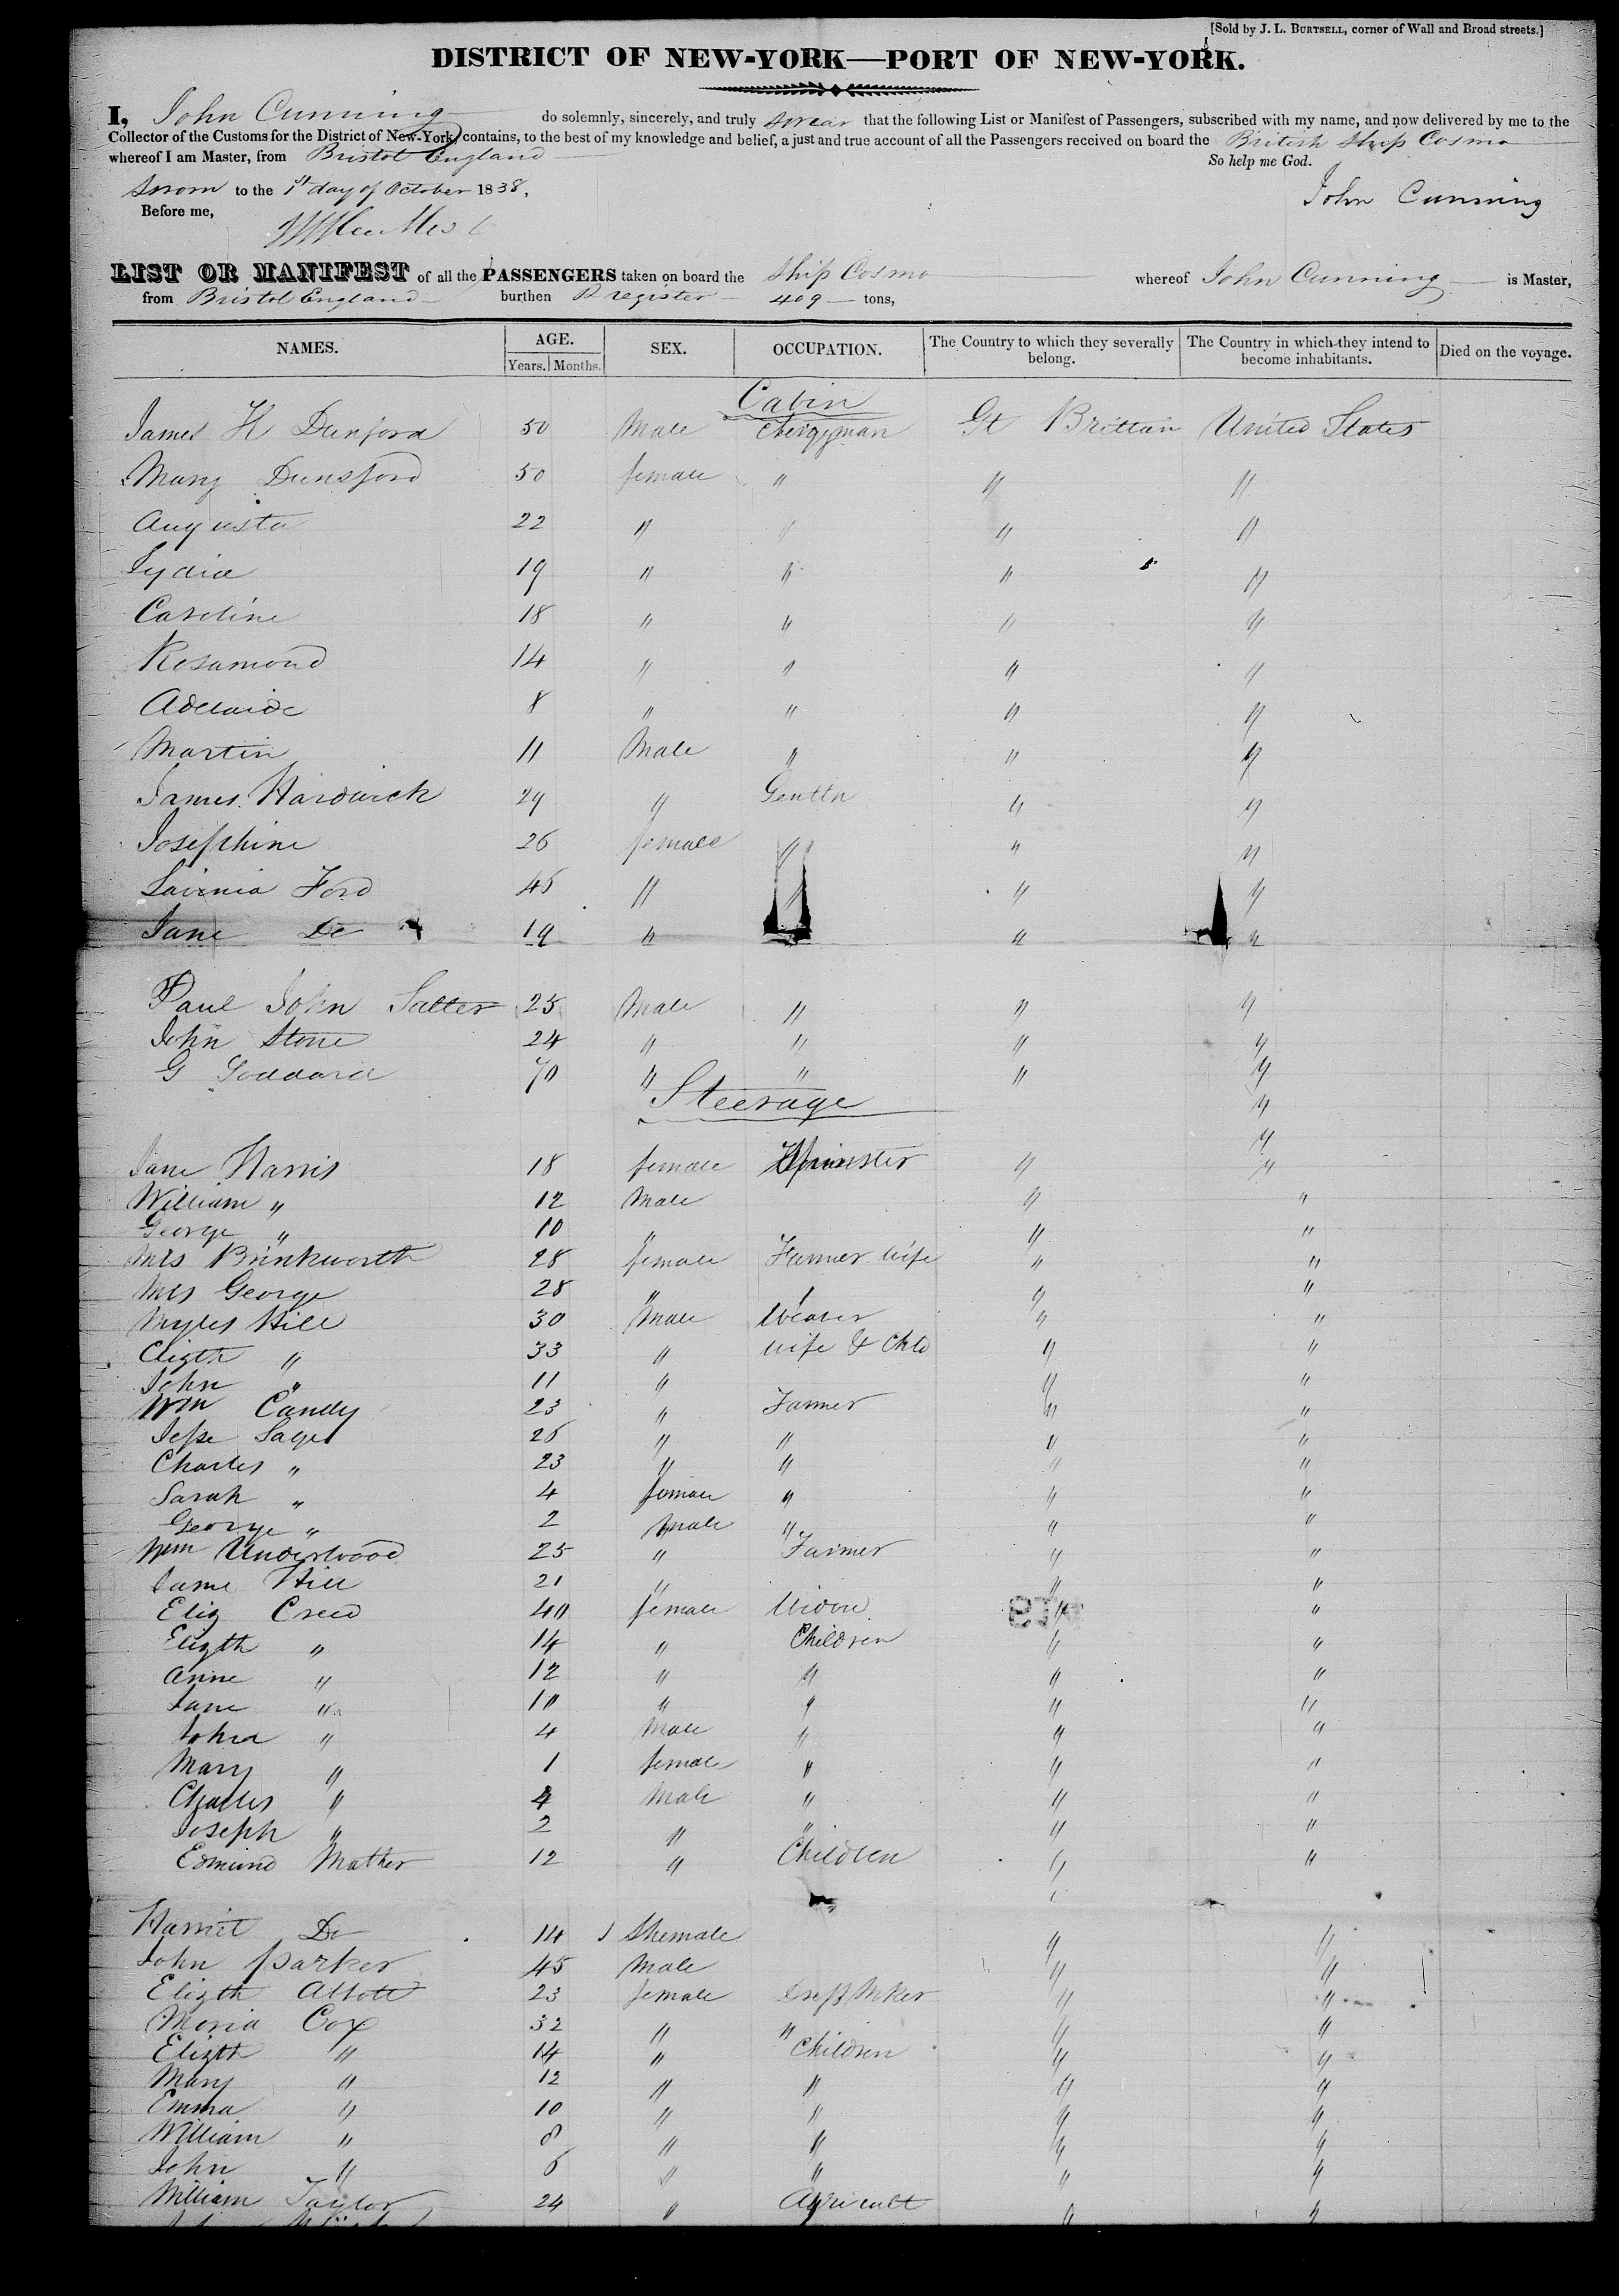 [Sold by J. L. BURTSELL, corner of Wall and Broad streets.]
DISTRICT OF NEW-YORK—PORT OF NEW-YORK.
I, John Cunning do solemnly, sincerely, and truly swear that the following List or Manifest of Passengers, subscribed with my name, and now delivered by me to the
Collector of the Customs for the District of New-York, contains, to the best of my knowledge and belief, a just and true account of all the Passengers received on board the British Ship Cosmo
whereof I am Master, from Bristol England So help me God.
Sworn to the 1st day of October 1838, John Cunning
Before me,
LIST OR MANIFEST of all the PASSENGERS taken on board the Ship Cosmo whereof John Cunning is Master,
from Bristol England burthen register 409 tons,
NAMES. AGE. SEX. OCCUPATION. The Country to which they severally belong. The Country in which they intend to become inhabitants. Died on the voyage.
Years. Months.
Cabin
James H Dunford 50 Male Clergyman Gt Brittain United States
Mary Dunsford 50 female " " "
Augusta 22 " " " "
Lydia 19 " " " "
Caroline 18 " " " "
Rosamond 14 " " " "
Adelaide 8 " " " "
Martin 11 Male " " "
James Hardwick 29 " Gentln " "
Josephine 26 female " " "
Lavinia Ford 45 " " " "
Jane Do 19 " " "
Paul John Salter 25 Male " " "
John Stone 24 " " " "
G Goddard 70 " " " "
Steerage "
"
Jane Harris 18 female Spinster " "
William " 12 Male " "
George " 10 " " "
Mrs Brinkworth 28 female Farmer Wife " "
Mrs George 28 " " " "
Myles Hill 30 Male Weaver " "
Elizth " 33 " wife & Chld " "
John " 11 " " "
Wm Candy 23 " Farmer " "
Jesse Sage 26 " " " "
Charles " 23 " " " "
Sarah " 4 female " " "
George " 2 Male " " "
Wm Underwood 25 " Farmer " "
Jame Hill 21 " " "
Eliz Creed 40 female Widow " "
Elizth " 14 " Children " "
Anne " 12 " " " "
Jane " 10 " " " "
John " 4 Male " " "
Mary " 1 female " " "
Charles " 4 Male " " "
Joseph " 2 " " " "
Edmund Mather 12 " Children " "
Harriet Do 14 Shemale " "
John Parker 45 Male " "
Elizth Abbott 23 female Dress Mker " "
Maria Cox 32 " " " "
Elizth " 14 " Children " "
Mary " 12 " " " "
Emma " 10 " " " "
William " 8 " " " "
John " 6 " " " "
William Taylor 24 " Agricult " "